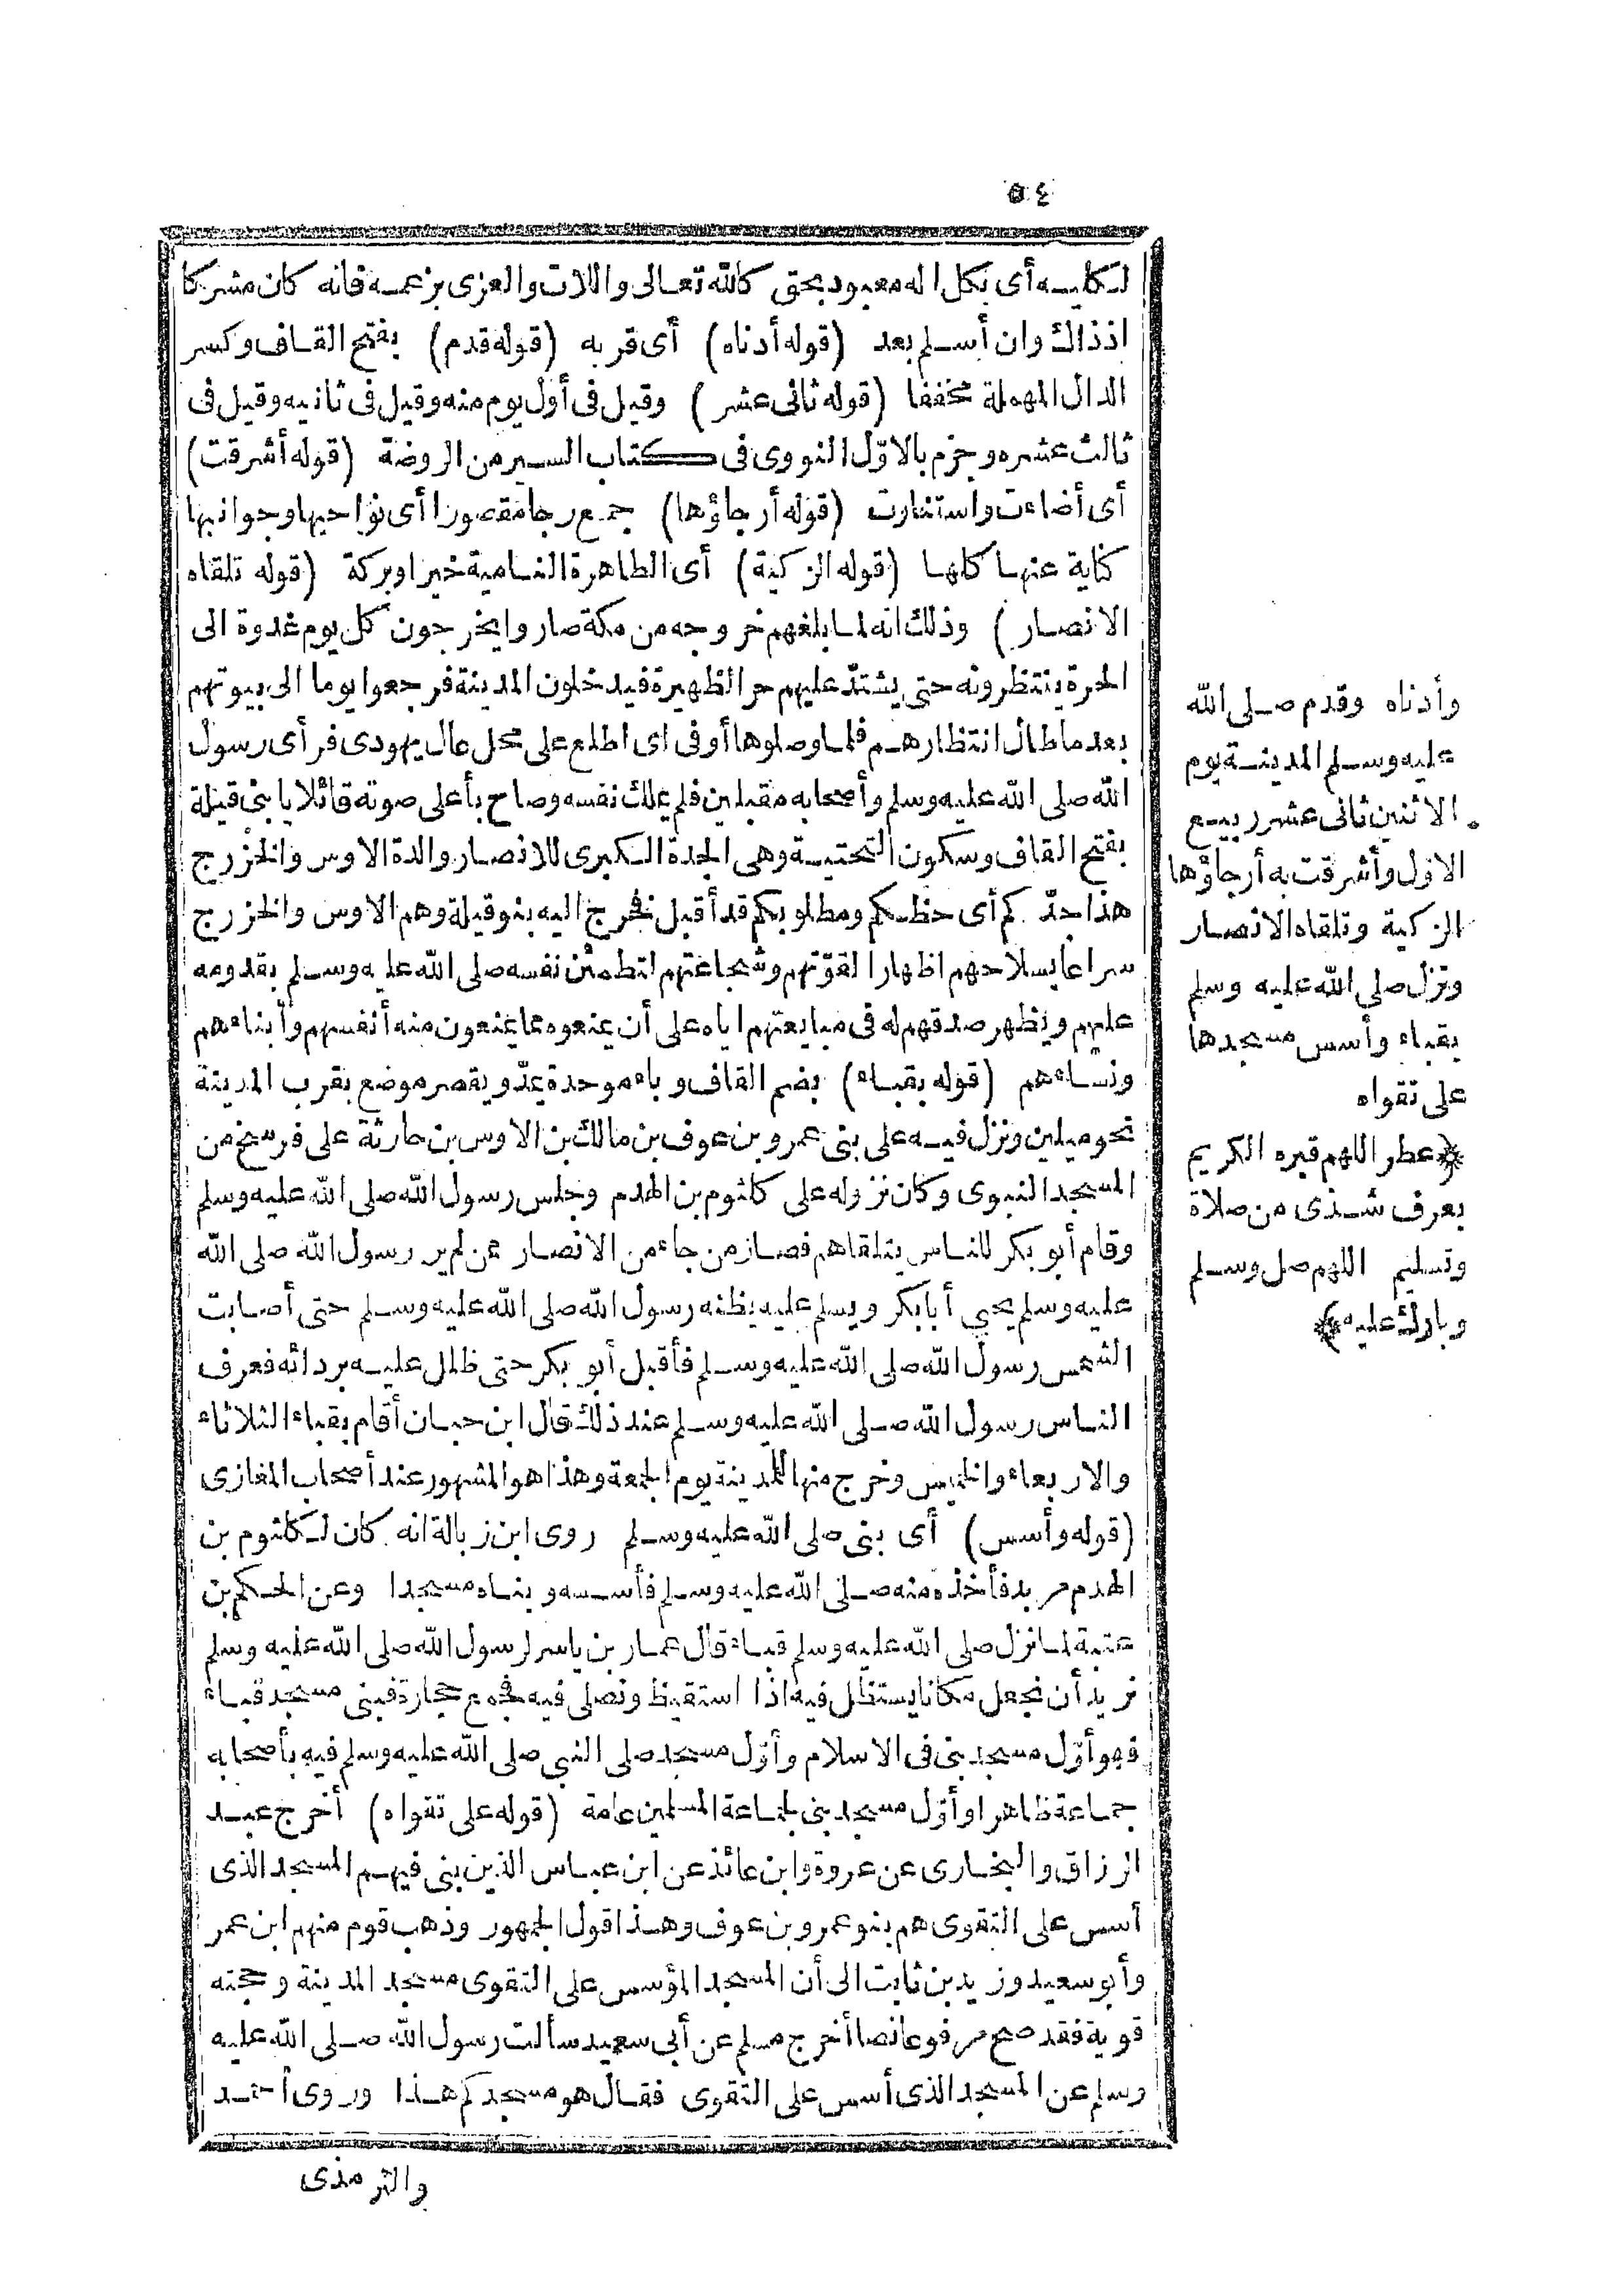 ٥٤
لكليه أى بكل اله معبود بحق كالله تعالى واللات والعزى بزعمه فانه كان مشركا
اذ ذاك وان أسلم بعد (قوله أدناه) أى قربه (قوله قدم) بفتح القاف وكسر
الدال المهملة مخففا (قوله ثانى عشر) وقيل فى أول يوم منه وقيل فى ثانيه وقيل فى
ثالث عشره وجزم بالاوّل النووى فى كتاب السير من الروضة (قوله أشرقت)
أى أضاءت واستنارت (قوله أرجاؤها) جمع رجا مقصورا أى نواحيها وجوانبها
كناية عنها كلها (قوله الزكية) أى الطاهرة النامية خيرا وبركة (قوله تلقاه
الانصار) وذلك انه لما بلغهم خروجه من مكة صاروا يخرجون كل يوم غدوة الى
الحرة ينتظرونه حتى يشتدّ عليهم حر الظهيرة فيدخلون المدينة فرجعوا يوما الى بيوتهم
بعد ما طال انتظارهم فلما وصلوها أوفى اى اطلع على محل عال يهودى فرأى رسول
الله صلى الله عليه وسلم وأصحابه مقبلين فلم يملك نفسه وصاح بأعلى صوته قائلا يا بنى قيلة
بفتح القاف وسكون التحتية وهى الجدة الكبرى للانصار والدة الاوس والخزرج
هذا جدّكم أى حظكم ومطلوبكم قد أقبل فخرج اليه بنو قيلة وهم الاوس والخزرج
سراعا بسلاحهم اظهارا لقوّتهم وشجاعتهم لتطمئن نفسه صلى الله عليه وسلم بقدومه
عليهم ويظهر صدقهم له فى مبايعتهم اياه على أن يمنعوه مما يمنعون منه أنفسهم وأبناءهم
ونساءهم (قوله بقباء) بضم القاف وباء موحدة يمدّ ويقصر موضع بقرب المدينة
نحو ميلين ونزل فيه على بنى عمرو بن عوف بن مالك بن الاوس بن حارثة على فرسخ من
المسجد النبوى وكان نزوله على كلثوم بن الهدم وجلس رسول الله صلى الله عليه وسلم
وقام أبو بكر للناس يتلقاهم فصار من جاء من الانصار ممن لم ير رسول الله صلى الله
عليه وسلم يحيي أبا بكر ويسلم عليه يظنه رسول الله صلى الله عليه وسلم حتى أصابت
الشمس رسول الله صلى الله عليه وسلم فأقبل أبو بكر حتى ظلل عليه بردائه فعرف
الناس رسول الله صلى الله عليه وسلم عند ذلك قال ابن حبان أقام بقباء الثلاثاء
والاربعاء والخميس وخرج منها للمدينة يوم الجمعة وهذا هو المشهور عند أصحاب المغازى
(قوله وأسس) أى بنى صلى الله عليه وسلم روى ابن زبالة انه كان لكلثوم بن
الهدم مربد فأخذه منه صلى الله عليه وسلم فأسسه وبناه مسجدا وعن الحكم بن
عتبة لما نزل صلى الله عليه وسلم قباء قال عمار بن ياسر لرسول الله صلى الله عليه وسلم
نريد أن نجعل مكانا يستظل فيه اذا استقيظ ونصلى فيه فجمع حجارة فبنى مسجد قباء
فهو أوّل مسجد بنى فى الاسلام وأوّل مسجد صلى النبي صلى الله عليه وسلم فيه بأصحابه
جماعة ظاهرا وأوّل مسجد بنى لجماعة المسلمين عامة (قوله على تقواه) أخرج عبد
الرزاق والبخارى عن عروة وابن عائذ عن ابن عباس الذين بنى فيهم المسجد الذى
أسس على التقوى هم بنو عمرو بن عوف وهذا قول الجمهور وذهب قوم منهم ابن عمر
وأبو سعيد وزيد بن ثابت الى أن المسجد المؤسس على التقوى مسجد المدينة وحجته
قوية فقد صح مرفوعا نصا أخرج مسلم عن أبى سعيد سألت رسول الله صلى الله عليه
وسلم عن المسجد الذى أسس على التقوى فقال هو مسجدكم هذا وروى أحمد
والترمذى
وأدناه وقدم صلى الله
عليه وسلم المدينة يوم
الاثنين ثانى عشر ربيع
الاوّل وأشرقت به أرجاؤها
الزكية وتلقاه الانصار
ونزل صلى الله عليه وسلم
بقباء وأسس مسجدها
على تقواه
﴿عطر اللهم قبره الكريم
بعرف شذى من صلاة
وتسليم اللهم صل وسلم
وبارك عليه﴾